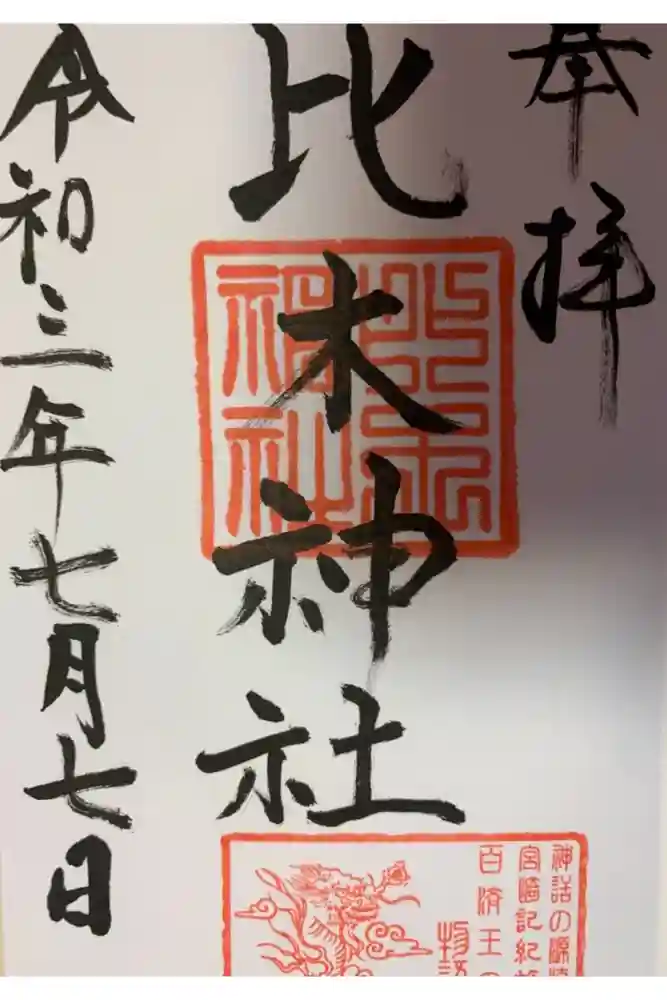 奉拝
比木神社
令和三年七月七日
比木
神社
神話の源
宮崎記紀
百済王の
物語